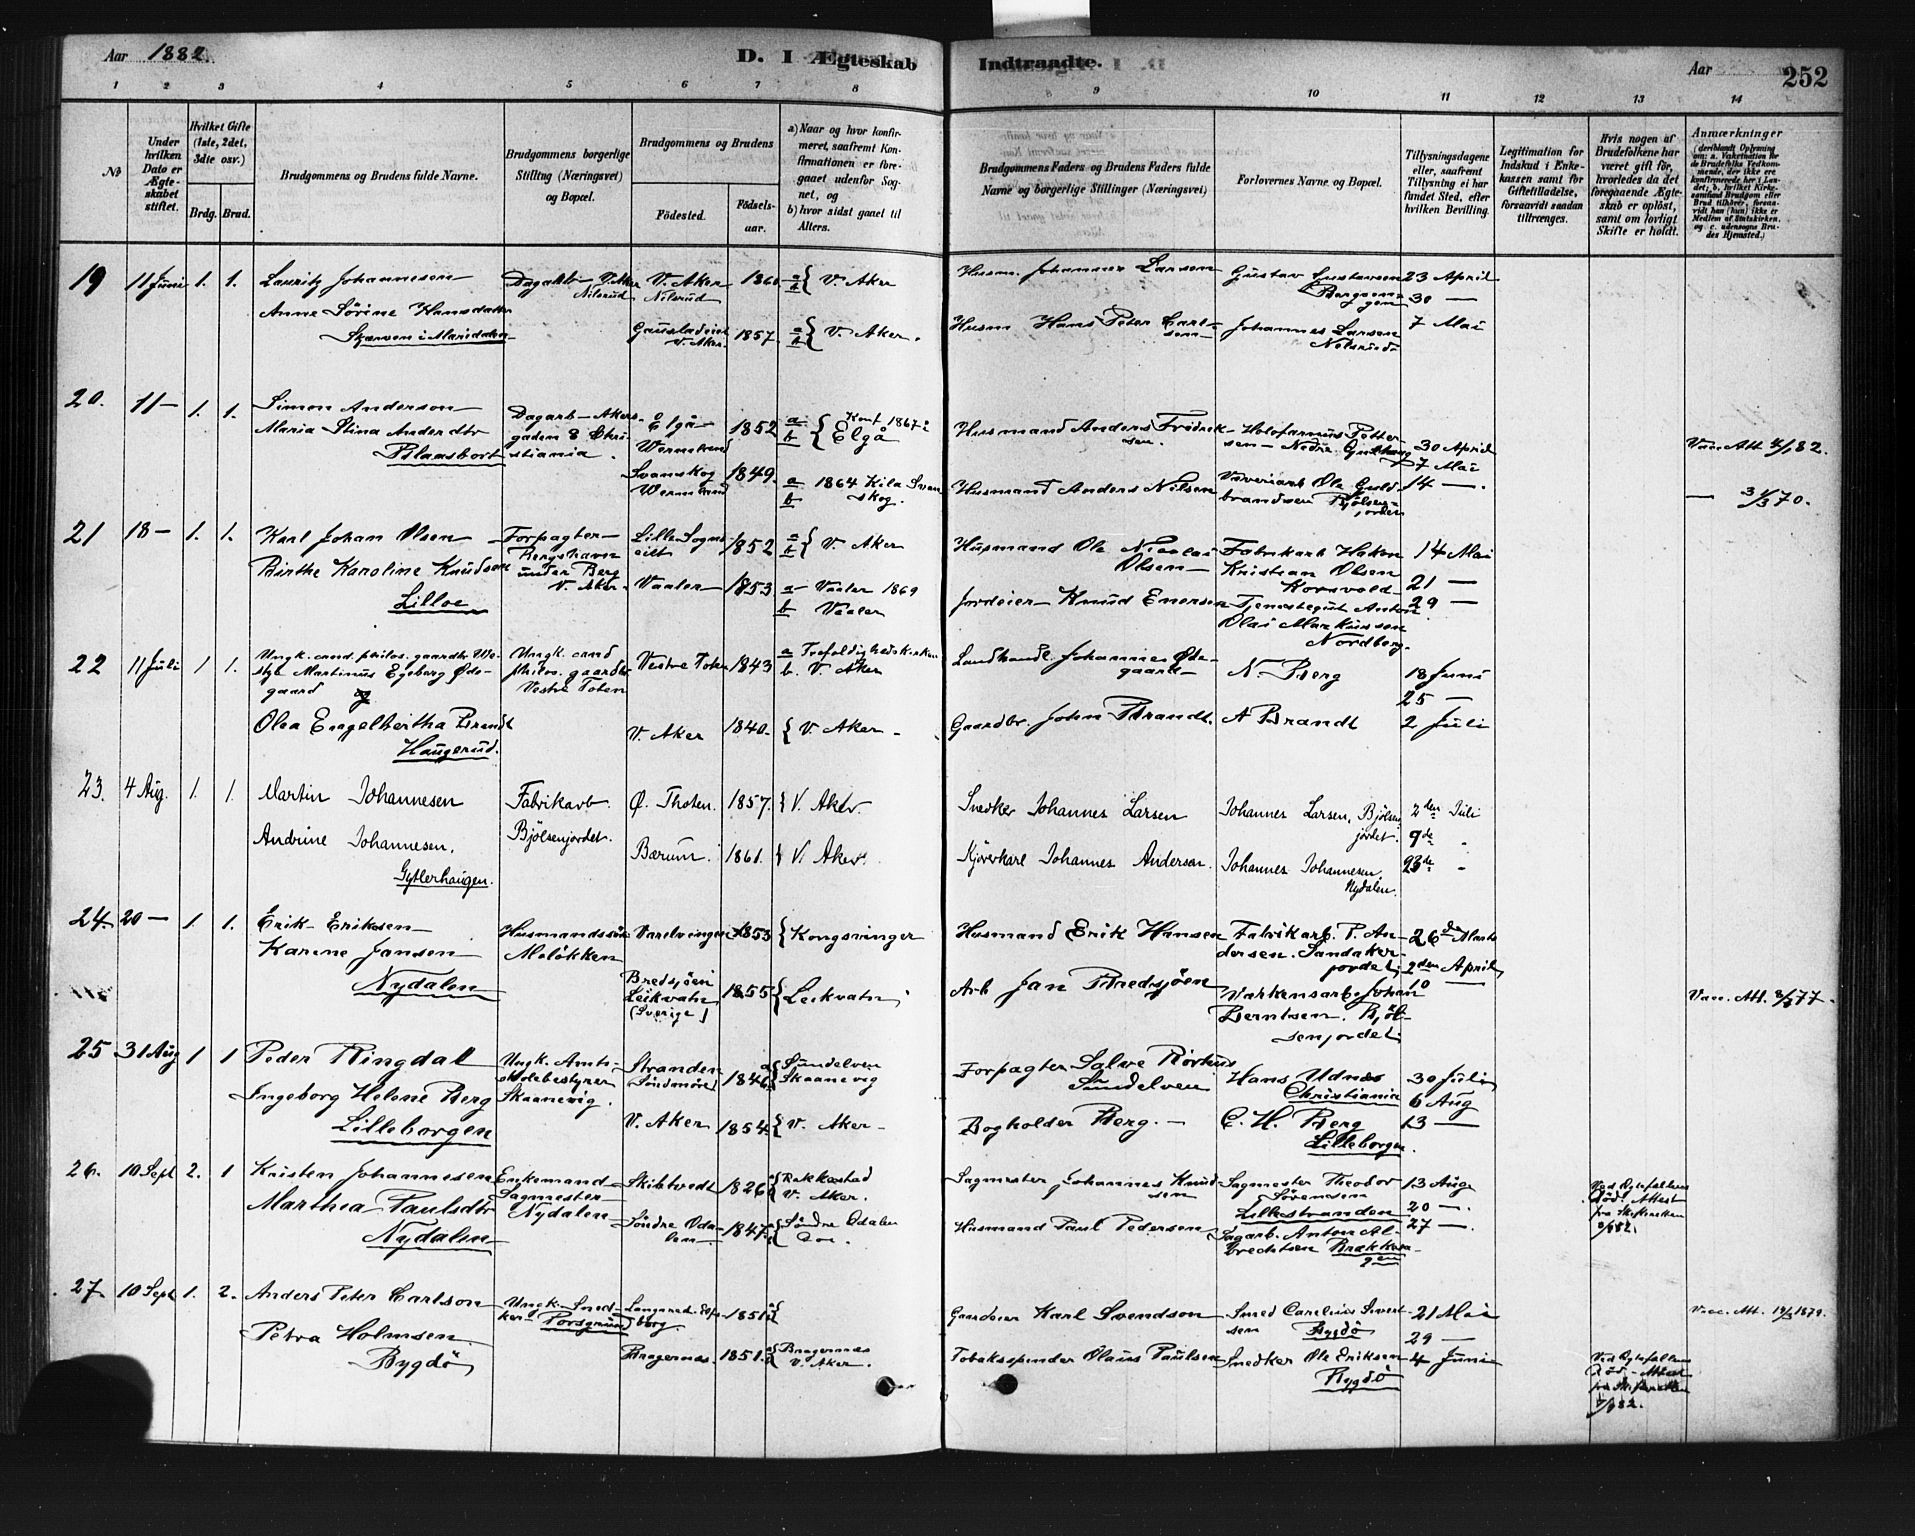 Aar 1882.
D. I Ægteskab Indtraadte.
Aar 252
1 2 3 4 5 6 7 8 9 10 11 12 13 14
No
Under hvilken Dato er Ægteskabet stiftet.
Hvilket Gifte (1ste, 2det, 3die osv.)
Brdg. Brud.
Brudgommens og Brudens fulde Navne.
Brudgommens borgerlige Stilling (Næringsvei) og Bopæl.
Brudgommens og Brudens
Fødested. Fødselsaar.
a) Naar og hvor konfirmeret, saafremt Konfirmationen er foregaaet udenfor Sognet, og
b) hvor sidst gaaet til Alters.
Brudgommens Faders og Brudens Faders fulde Navne og borgerlige Stillinger (Næringsvei)
Forlovernes Navne og Bopæl.
Tillysningsdagene eller, saafremt Tillysning ei har fundet Sted, efter hvilken Bevilling.
Legitimation for Indskud i Enkekassen samt for Giftetilladelse, forsaavidt saadan tiltrænges.
Hvis nogen af Brudefolkene har været gift før, hvorledes da det foregaaende Ægteskab er opløst, samt om lovligt Skifte er holdt.
Anmærkninger
19 11 Juni 1. 1. Lauritz Johannesen
Dagarb V. Aker Nilsrud V. Aker Nilsrud 1860 a b { V. Aker
Husm. Johannes Larsen Gustav Gustavsen 23 April
30 —
Anne Sørine Hansdatter
Skjærven i Maridalen
Gaustadeiet V. Aker. 1857. a b { V. Aker.
Husm Hans Peter Carlsen Johannes Larsen Nilsrud 7 Mai
20. 11 — 1. 1. Simon Anderson
Maria Stina Andersdtr
Dagarb — Akersgaden 8 Christiania.
Elgå Wermland 1852 a b { Konf 1867 i Elgå
Husmand Anders Fredriksen 30 April
7 Mai
Vac. Att
Svanskog Wermland 1849. a 1864 Kila Svanskog.
b
Husmand Anders Nilsen Væveriarb Ole Guldbrandsen Bjølsenjordet 14 —.
21 18 — 1. 1. Karl Johan Olsen
Birthe Karoline Knudsen
Lilloe
Forpagter — Bergshavn under Berg V. Aker.
1852 a b { V. Aker
Husmand Ole Nicolai Olsen — Fabrikarb Haken Kristian Olsen Korsvold 14 Mai
21 —
Vaaler — 1853 a — Vaaler 1869
b Vaaler
Jordeier — Knud Enersen Tjenestegut Anton Olai Markussen Nordberg. 29 —
22 11 Juli 1 1. Ungk. cand. philos. gaardbr. Martinus Egeberg Ødegaard
og
Olea Engelbertha Brandt
Haugerud.
Ungk. cand philos. gaardbr Vestre Toten
Vestre Toten 1843 a Trefoldighedskirken
b. V. Aker
Landhandl. Johannes Ødegaard — N. Berg 18 Juni
25 —
V. Aker 1840. { V. Aker —
Gaardbr. John Brandt. A Brandt 2 Juli
23. 4 Aug. 1. 1. Martin Johannesen
Andrine Johannesen.
Gytlerhaugen.
Fabrikarb. Bjölsenjordet.
Ø. Thoten. 1857. { V. Aker.
Snedker Johannes Larsen Johannes Larsen, Bjölsenjordet. 2den Juli
9de "
Bærum. 1861. { V. Aker.
Kjørerkarl Johannes Andersen. Johannes Johannesen. Nydalen. 23de "
24. 20 — 1. 1. Erik Eriksen —
Karine Jansen —
Nydalen
Husmandssøn Moløkken
1853 { Kongsvinger
Husmand Erik Hansen Fabrikarb. P. Andersen. Sandakerjordet. 26de Marts
2den April
Bredsjøen Leikvatn (Sverige) 1855 { Leikvatn
Arb Jan Bredsjøen Johan Berntsen. Bjölsenjordet. 10
Vac. Att. 77.
25 31 Aug 1 1 Peder Ringdal
Ingeborg Helene Berg
Lilleborgen
Ungk. Amtsskolebestyrer Skaanevig.
Stranden Søndmøre 1846 Sundelven Skaanevig
Forpagter Salve Sundelven Hans Udnæs Christiania 30 Juli
6 Aug
V. Aker 1854. { V. Aker —
Bogholder Berg. — C. H. Berg Lilleborgen. 13 —
26. 10 Sept 2. 1 Kristen Johannesen
Marthea Paulsdtr
Nydalen
Enkemand — Sagmester — Nydalen
Skibtvedt 1826 Rakkestad V. Aker.
Sagmester Johannes Knudsen Sagmester Theodor Sørensen Lillestranden 13 Aug
20 —.
Søndre Odalen 1847. Søndre Odalen
Husmand Paul Pedersen Sagarb. Anton Albrechtsen 27 —.
27. 10 Sept 1. 2. Anders Peter Carlson
Petra Holmsen
Bygdö
Ungk. Snedker — Porsgrund
1851
Gaardeier Karl Svendson Smed Carelius Sivertsen Bygdö 21 Mai
29 —
Vac. Att. 1879.
Bragernæs. 1851. Bragernæs V. Aker.
Tobaksspinder Olaus Paulsen Snedker Ole Eriksen Bygdö 4 Juni